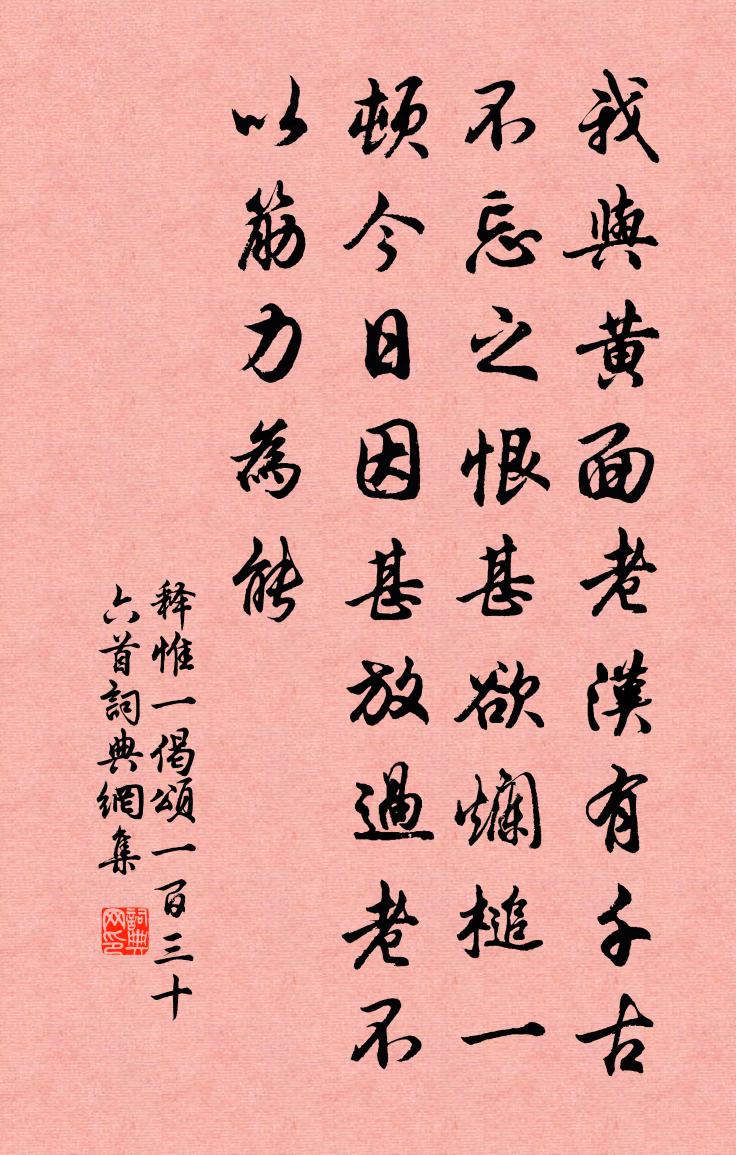 我與黄面老漢有千古
不忘之恨甚欲爛槌一
頓今日因甚放過老不
以筋力為能
释惟一偈頌一百三十
六首詞典網集
詞典网印